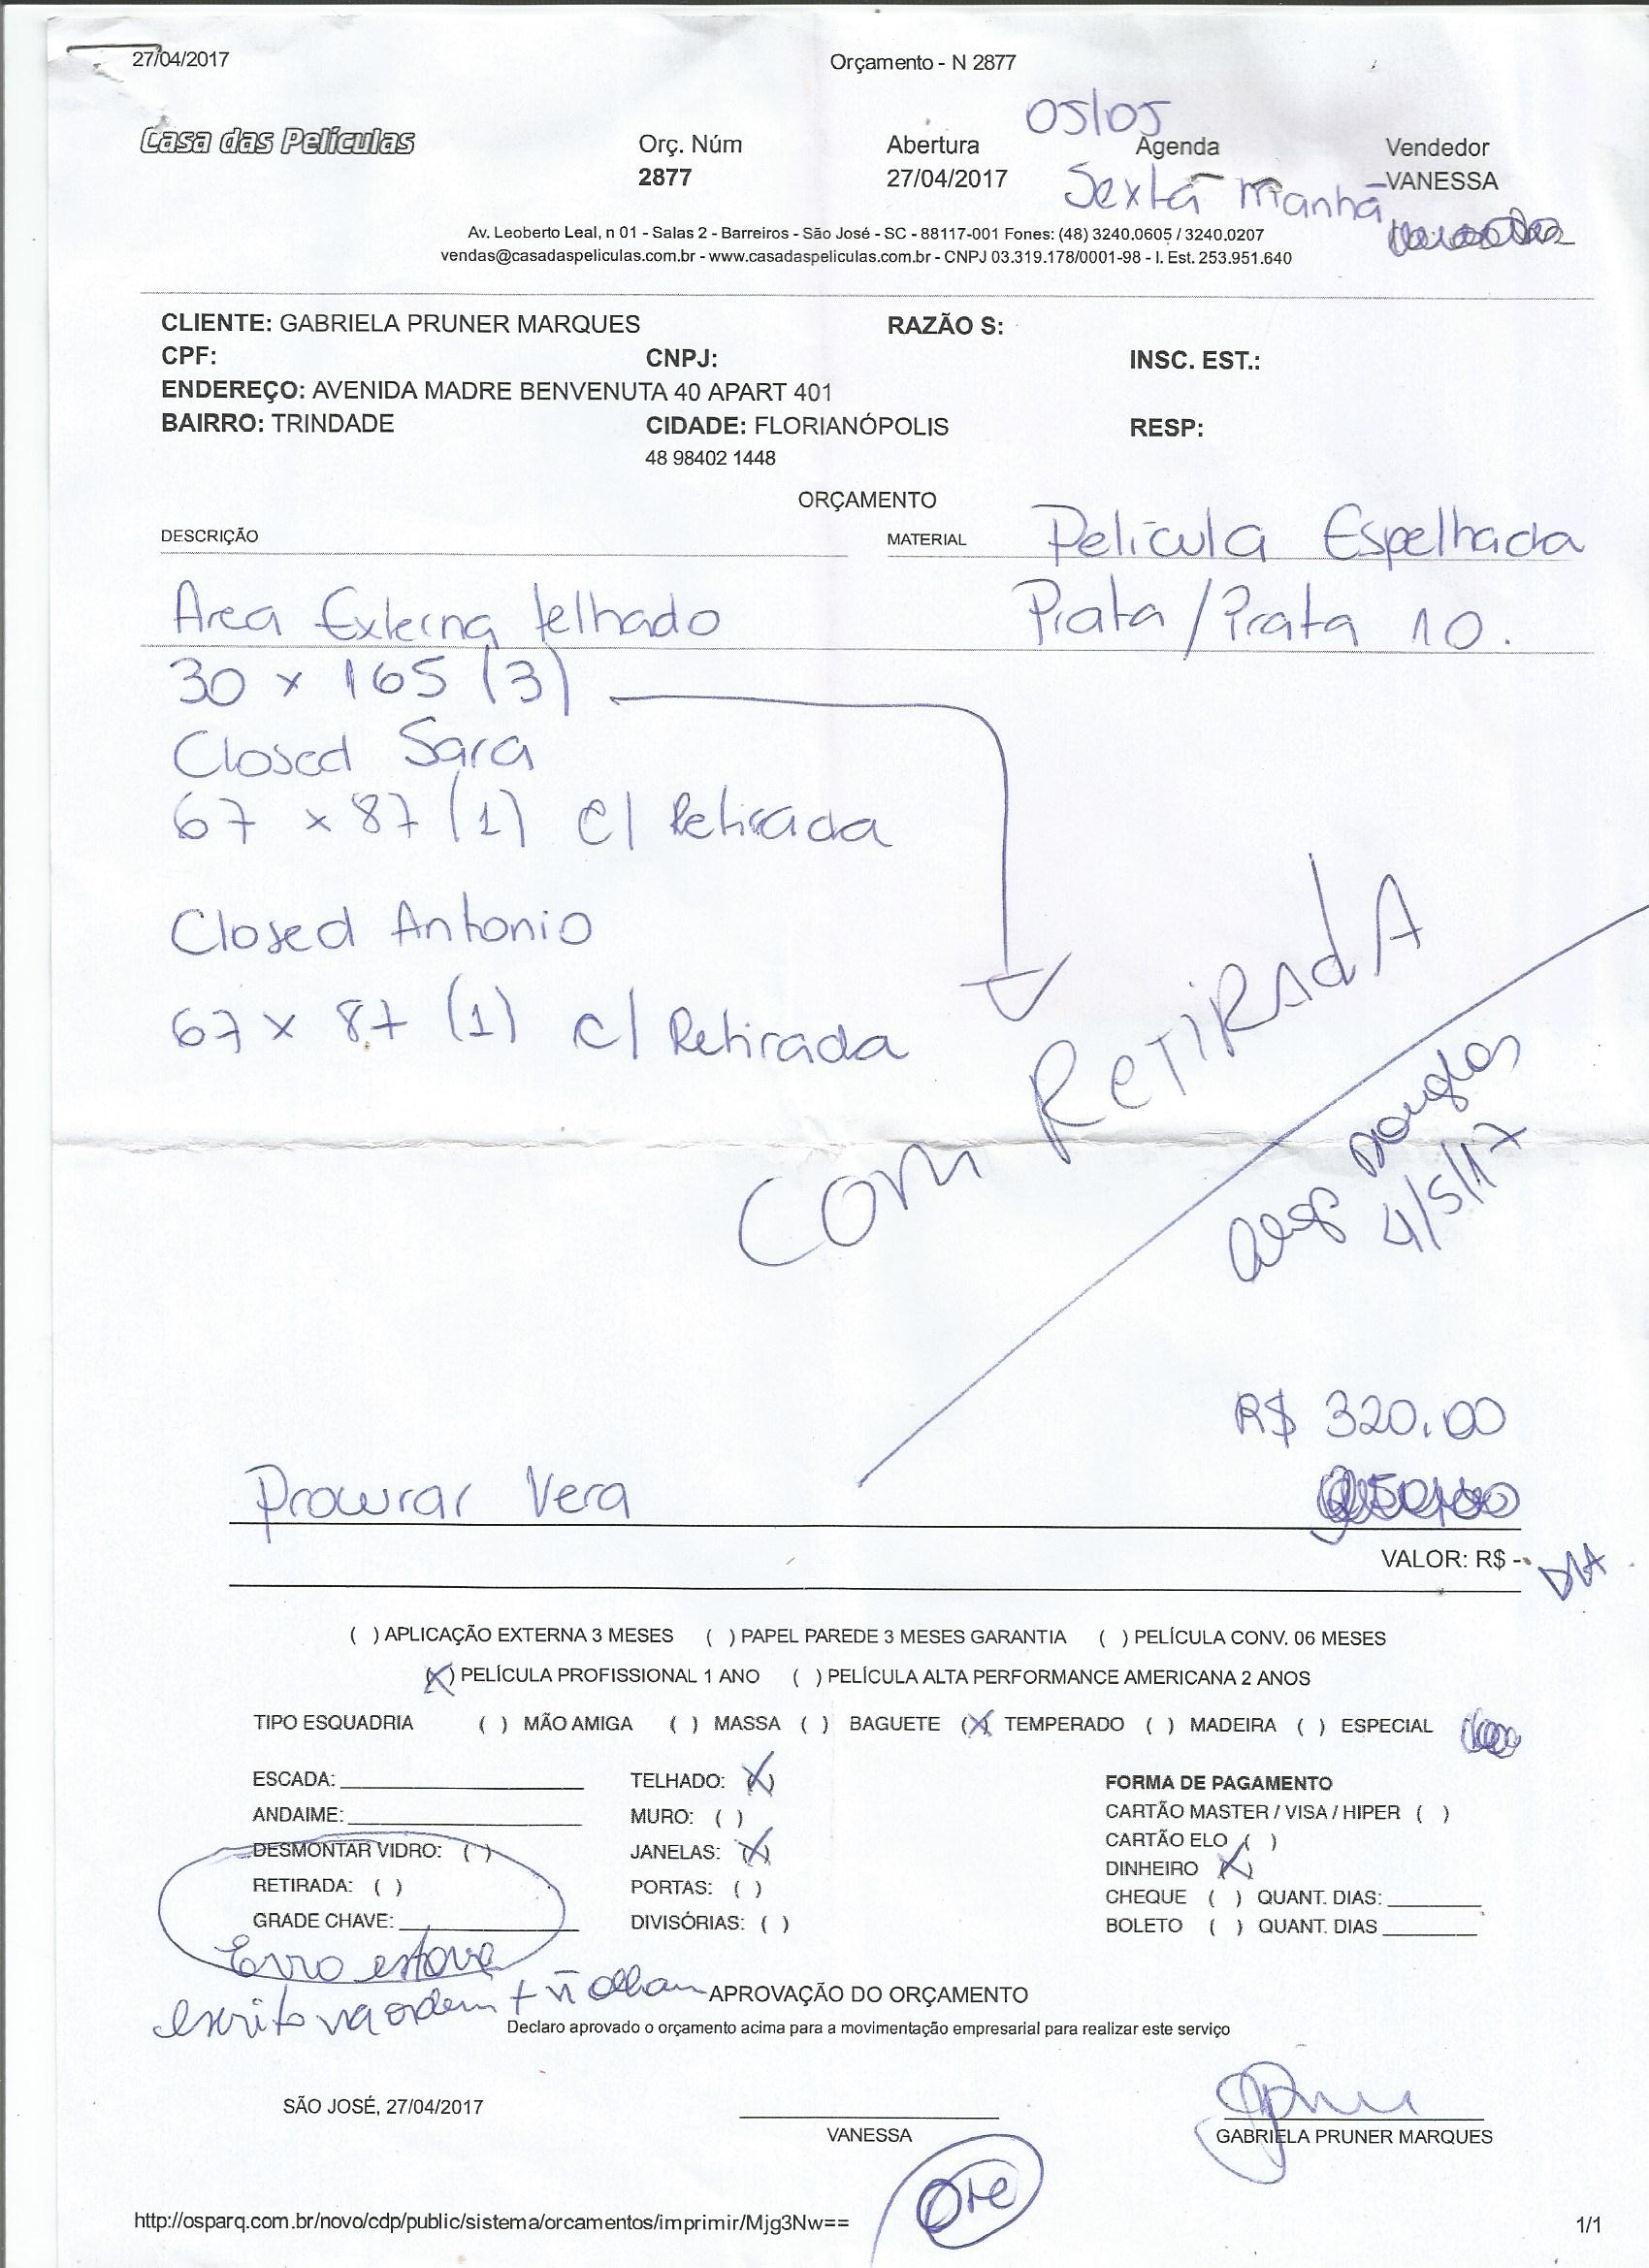 27/04/2017 Orçamento - N 2877
05/05
Casa das Películas Orç. Núm Abertura Agenda Vendedor
2877 27/04/2017 Sexta Manhã VANESSA
Av. Leoberto Leal, n 01 - Salas 2 - Barreiros - São José - SC - 88117-001 Fones: (48) 3240.0605 / 3240.0207
vendas@casadaspeliculas.com.br - www.casadaspeliculas.com.br - CNPJ 03.319.178/0001-98 - I. Est. 253.951.640
CLIENTE: GABRIELA PRUNER MARQUES RAZÃO S:
CPF: CNPJ: INSC. EST.:
ENDEREÇO: AVENIDA MADRE BENVENUTA 40 APART 401
BAIRRO: TRINDADE CIDADE: FLORIANÓPOLIS RESP:
48 98402 1448
ORÇAMENTO
DESCRIÇÃO MATERIAL Película Espelhada
Area Externa telhado Prata/Prata 10.
30 x 165 (3)
Closed Sara
67 x 87 (1) c/ Retirada
Closed Antonio
67 x 87 (1) c/ Retirada
COM RETIRADA
4/5/17
R$ 320,00
Procurar Vera
VALOR: R$ -
( ) APLICAÇÃO EXTERNA 3 MESES ( ) PAPEL PAREDE 3 MESES GARANTIA ( ) PELÍCULA CONV. 06 MESES
(X) PELÍCULA PROFISSIONAL 1 ANO ( ) PELÍCULA ALTA PERFORMANCE AMERICANA 2 ANOS
TIPO ESQUADRIA ( ) MÃO AMIGA ( ) MASSA ( ) BAGUETE (X) TEMPERADO ( ) MADEIRA ( ) ESPECIAL
ESCADA: TELHADO: (X) FORMA DE PAGAMENTO
ANDAIME: MURO: ( ) CARTÃO MASTER / VISA / HIPER ( )
DESMONTAR VIDRO: ( ) JANELAS: (X) CARTÃO ELO ( )
DINHEIRO (X)
RETIRADA: ( ) PORTAS: ( ) CHEQUE ( ) QUANT. DIAS:
GRADE CHAVE: DIVISÓRIAS: ( ) BOLETO ( ) QUANT. DIAS
Erro estava
escrito na ordem + ñ olham APROVAÇÃO DO ORÇAMENTO
Declaro aprovado o orçamento acima para a movimentação empresarial para realizar este serviço
SÃO JOSÉ, 27/04/2017
VANESSA GABRIELA PRUNER MARQUES
http://osparq.com.br/novo/cdp/public/sistema/orcamentos/imprimir/Mjg3Nw== 1/1